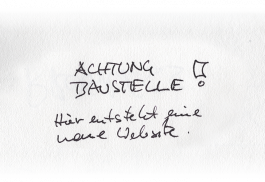 ACHTUNG !
BAUSTELLE
Hier entsteht eine
neue Website.